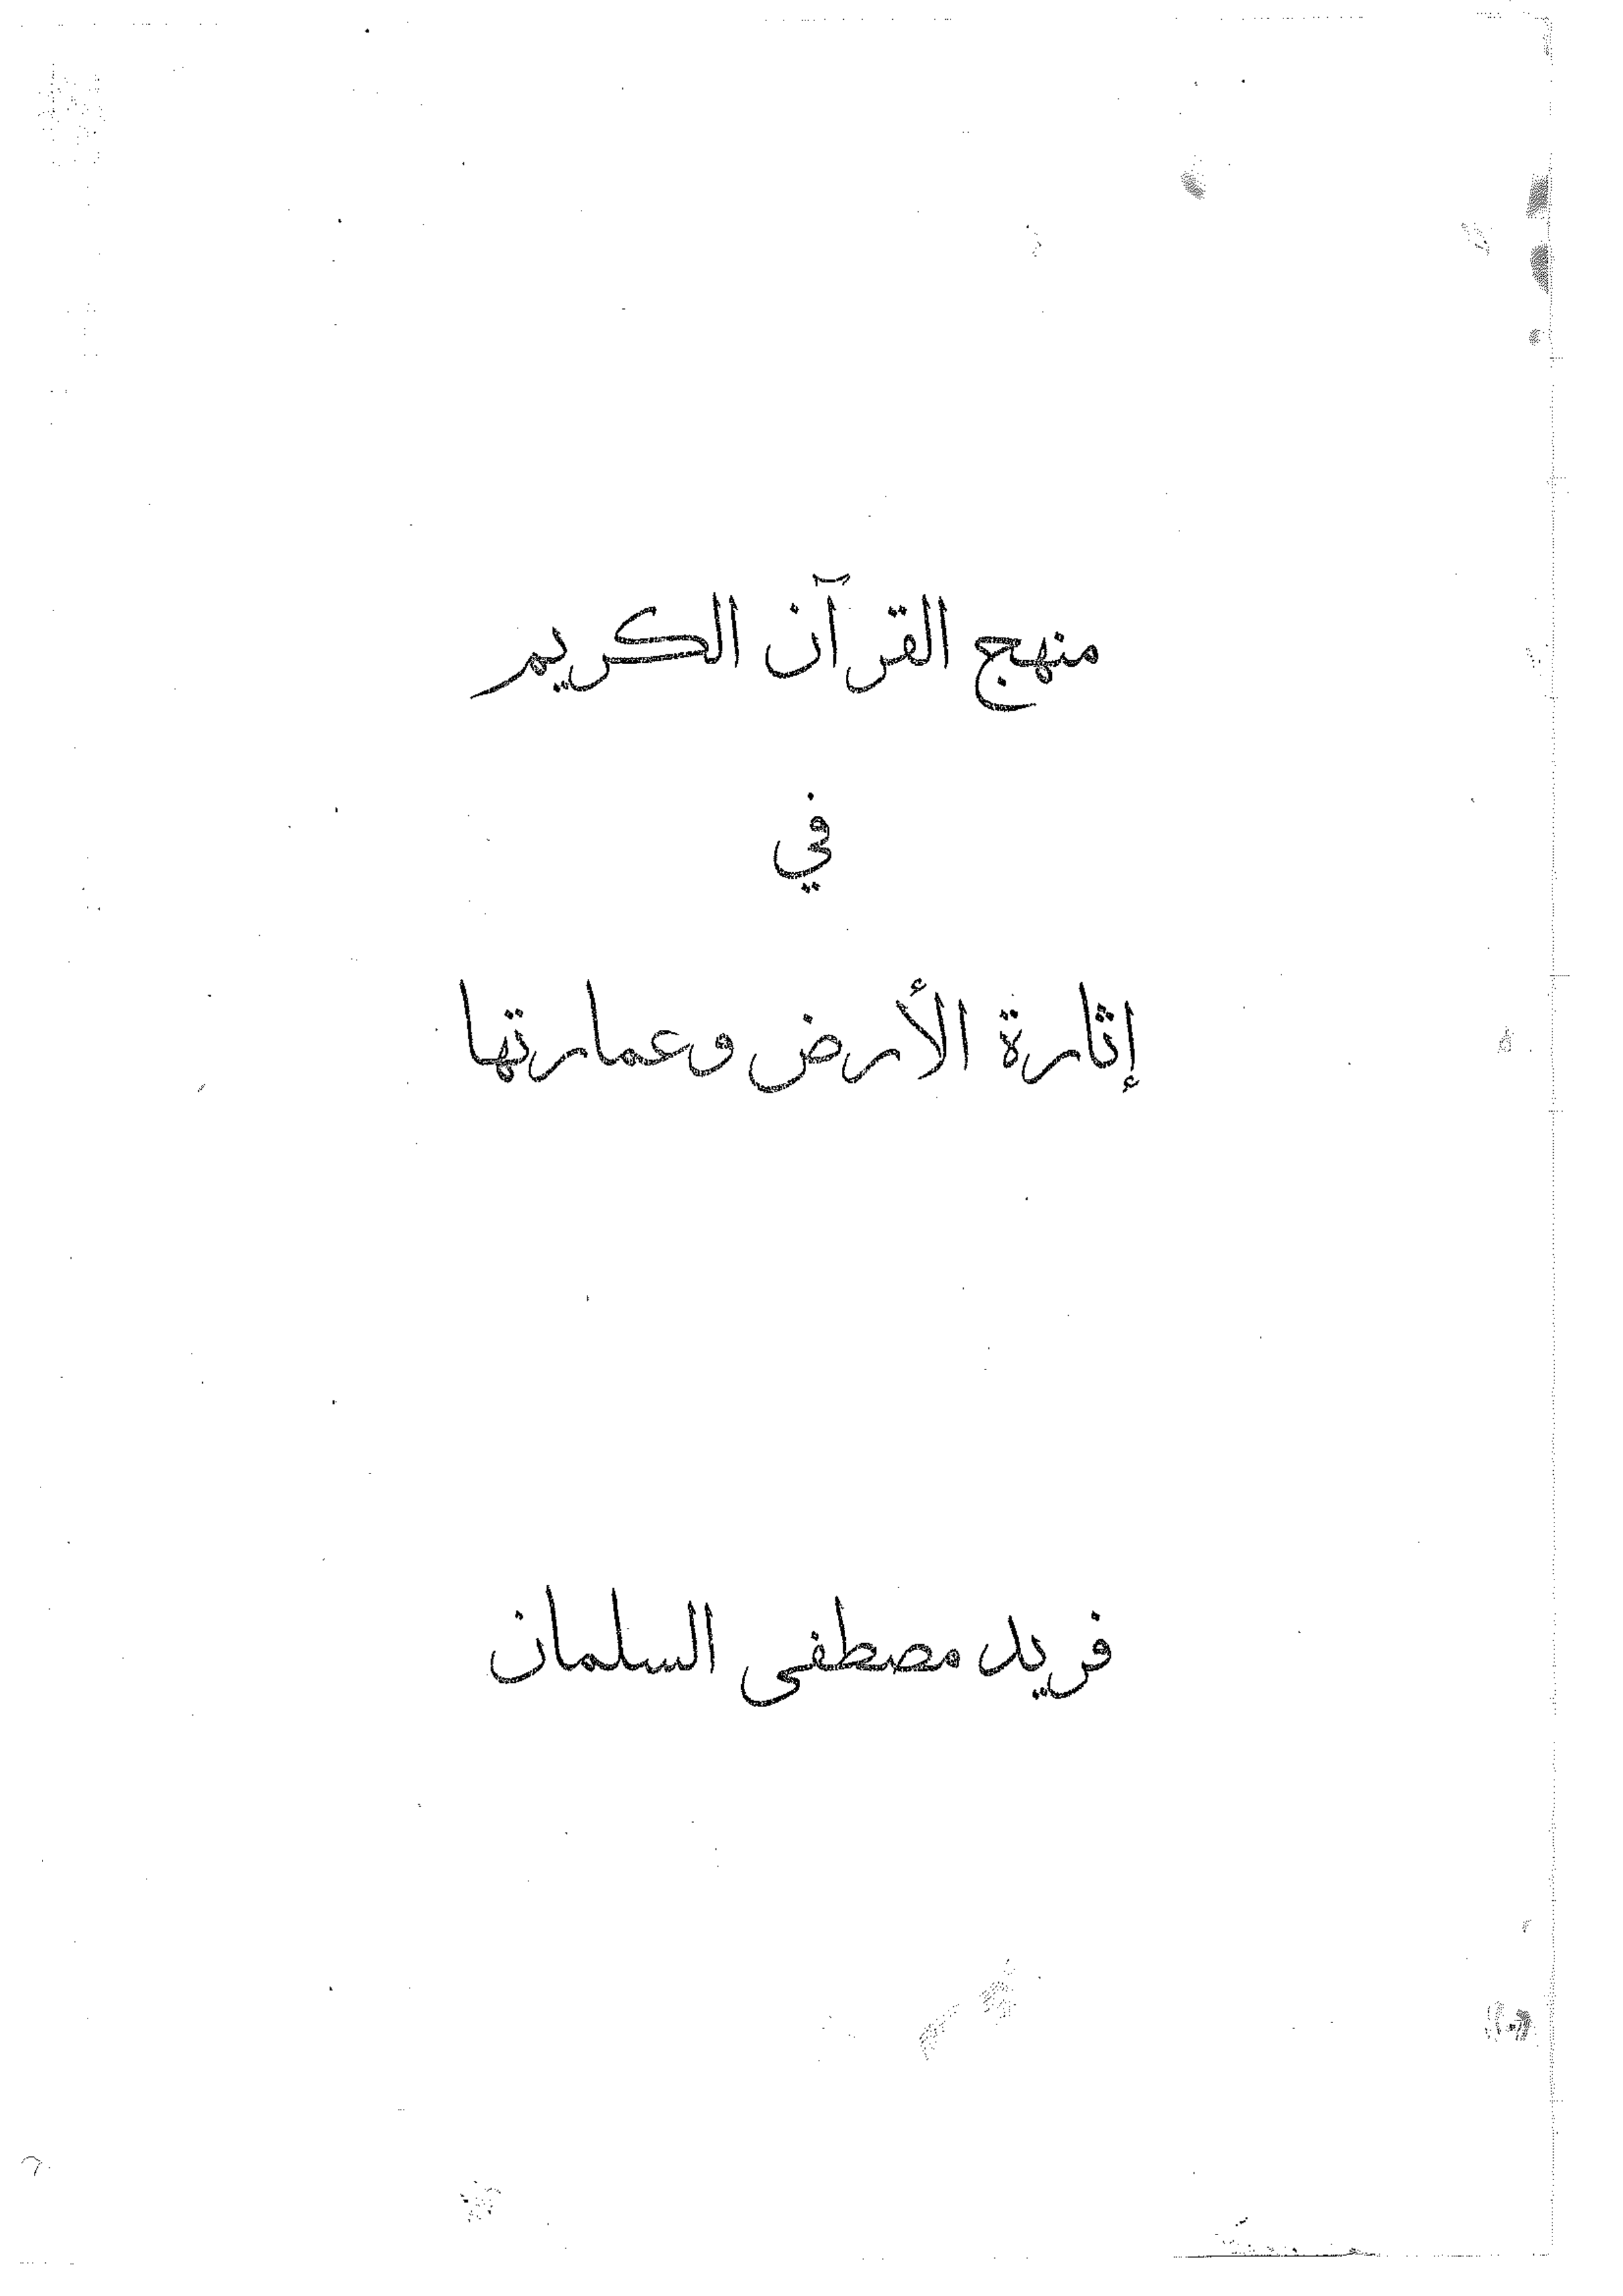 منهج القرآن الكريم
في
إثارة الأرض وعمارتها
فريد مصطفى السلمان